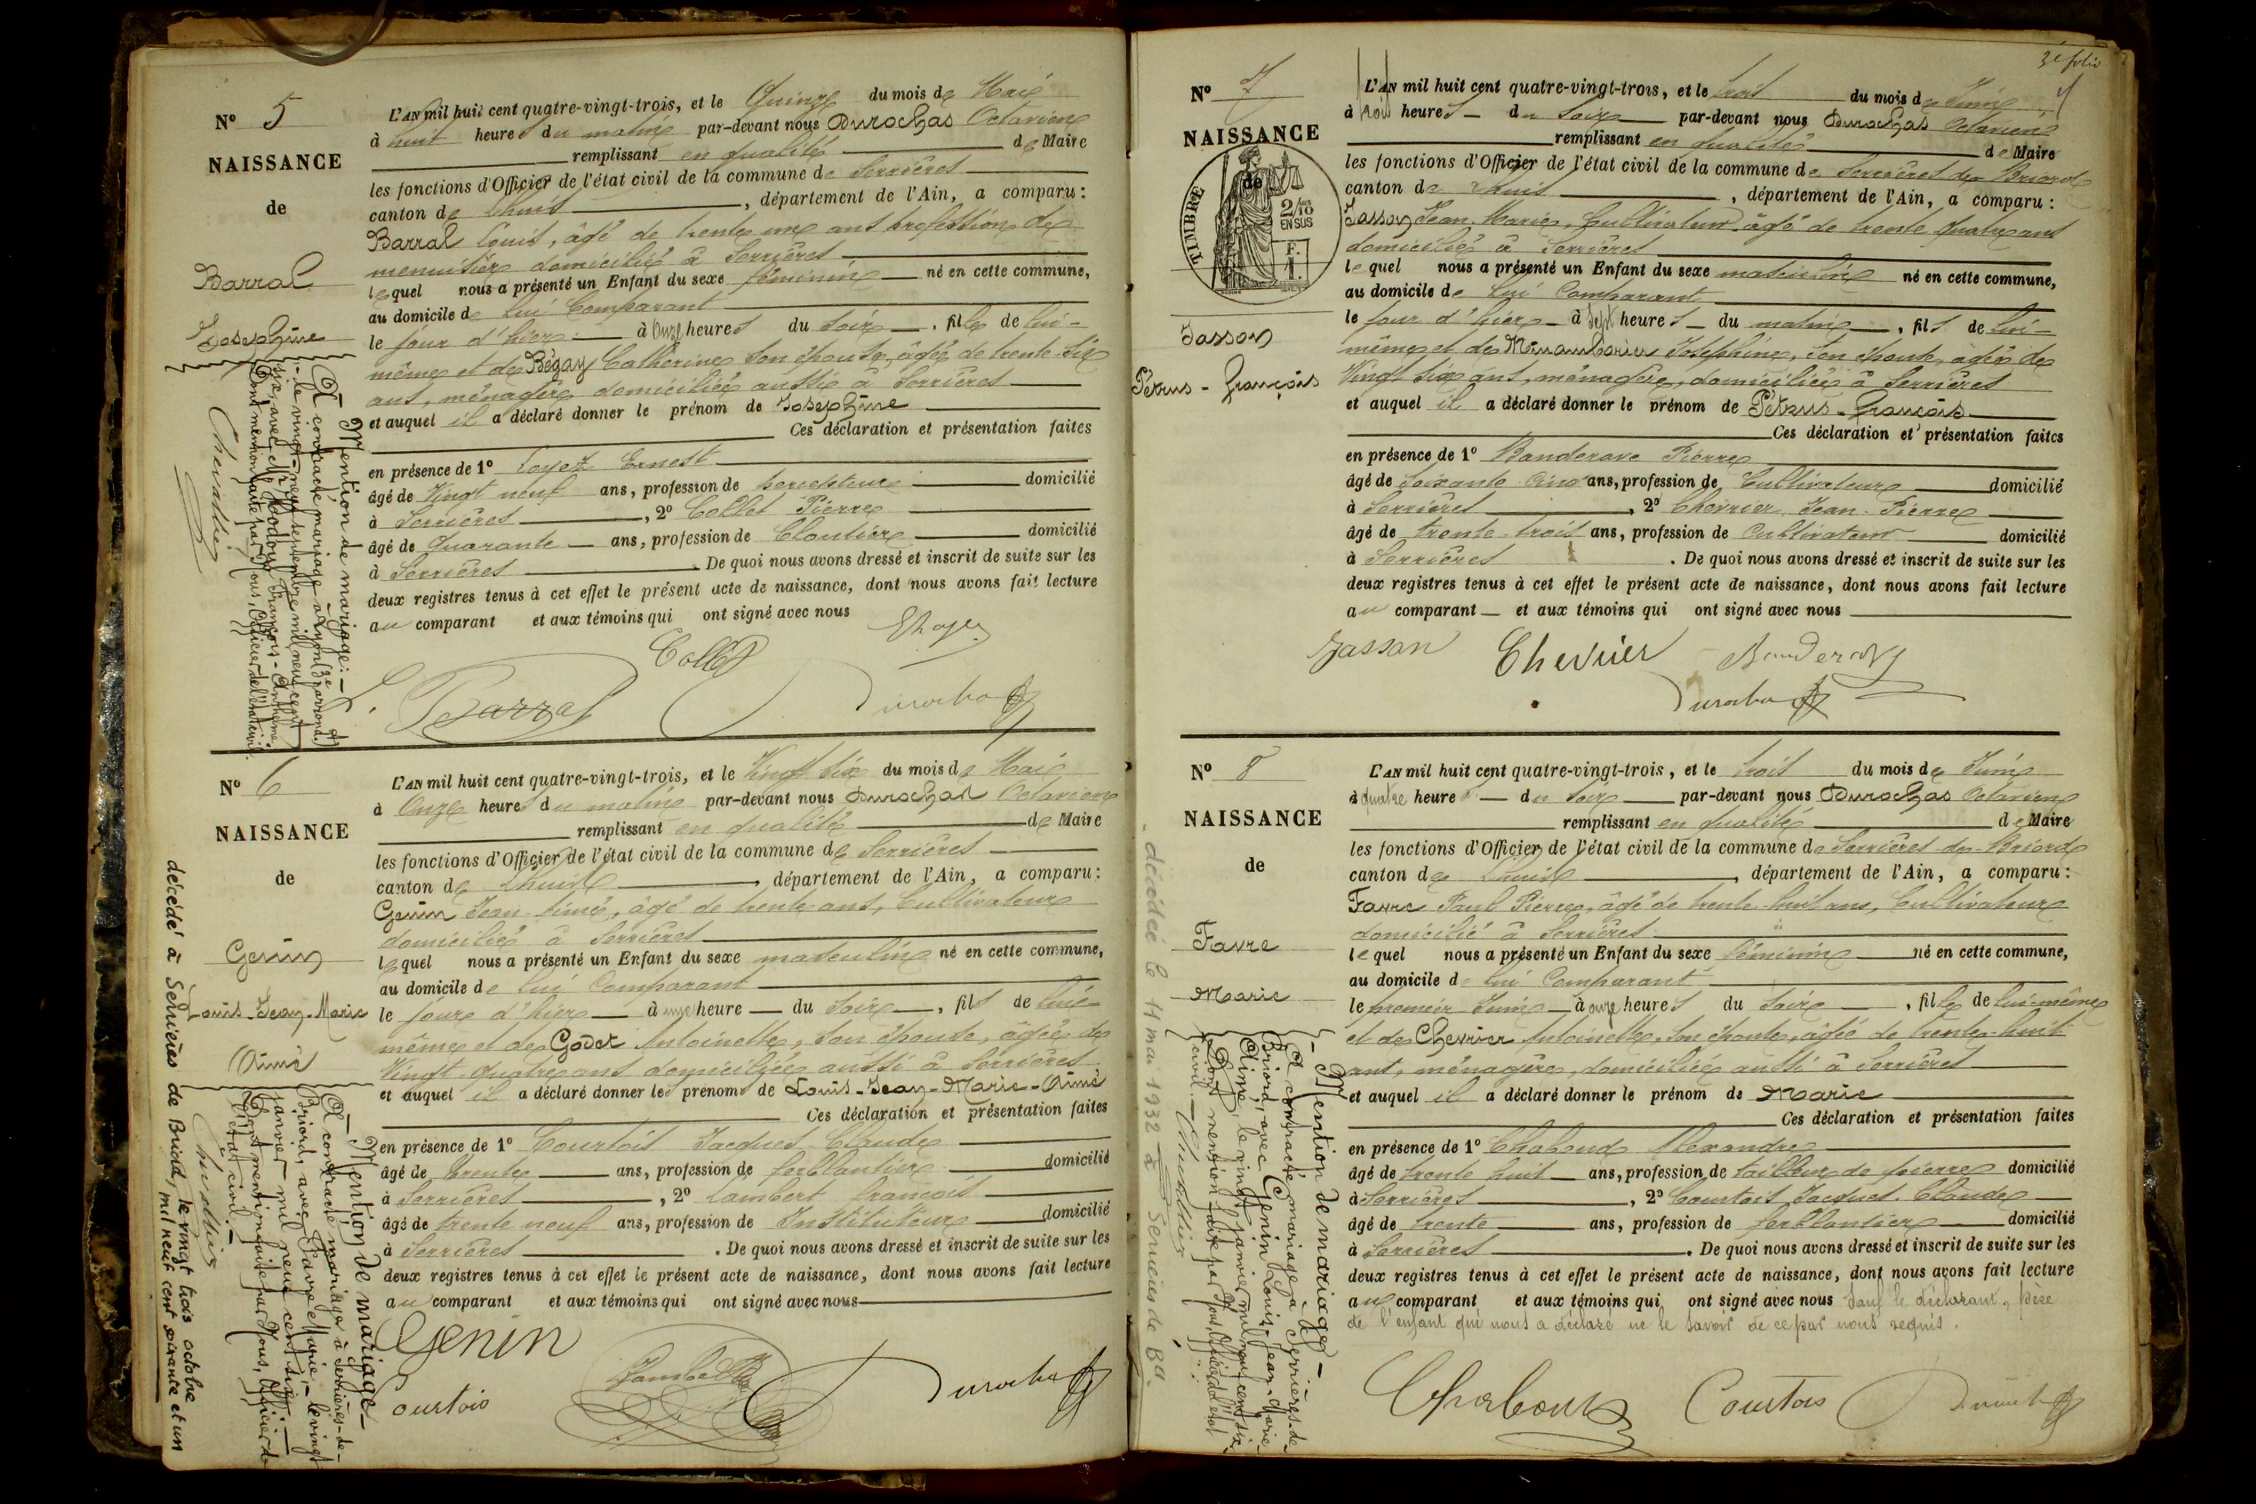 Nº 5
NAISSANCE
de
Barral
Josephine
L'AN mil huit cent quatre-vingt-trois, et le Quinze du mois de Mai
à huit heures du matin par-devant nous Durochas Octavien
remplissant en qualité de Maire
les fonctions d'Officier de l'état civil de la commune de Serrières
canton de Lhuis, département de l'Ain, a comparu :
Barral Louis, âgé de trente un ans profession de
menuisier domicilié à Serrières
lequel nous a présenté un Enfant du sexe féminin né en cette commune,
au domicile de lui Comparant
le jour d'hier à onze heures du soir, fille de lui-
même et de Bégay Catherine son épouse, âgée de trente-six
ans, ménagère domiciliée aussi à Serrières
et auquel il a déclaré donner le prénom de Josephine
Ces déclaration et présentation faites
en présence de 1º Loyez Ernest
âgé de Vingt neuf ans, profession de percepteur domicilié
à Serrières, 2º Collet Pierre
âgé de Quarante ans, profession de Cloutier domicilié
à Serrières. De quoi nous avons dressé et inscrit de suite sur les
deux registres tenus à cet effet le présent acte de naissance, dont nous avons fait lecture
au comparant et aux témoins qui ont signé avec nous
ELoyez
Collet
Barral
Durochas
- Mention de mariage : -
A contracté mariage à Lyon (3e arrond.)
le vingt-neuf septembre mil neuf cent
six, avec Mr François-Anthelme
Dont mention faite par Nous, Officier de l'état civil
Chevallier
Nº 6
NAISSANCE
de
Genin
Louis-Jean-Marie
Aimé
L'AN mil huit cent quatre-vingt-trois, et le Vingt six du mois de Mai
à Onze heures du matin par-devant nous Durochas Octavien
remplissant en qualité de Maire
les fonctions d'Officier de l'état civil de la commune de Serrières
canton de Lhuis, département de l'Ain, a comparu :
Genin Jean Aimé, âgé de trente ans, Cultivateur
domicilié à Serrières
lequel nous a présenté un Enfant du sexe masculin né en cette commune,
au domicile de lui Comparant
le jour d'hier à onze heure du soir, fils de lui-
même et de Godet Antoinette, son épouse, âgée de
Vingt-quatre ans domiciliée aussi à Serrières
et auquel il a déclaré donner les prénoms de Louis-Jean-Marie-Aimé
Ces déclaration et présentation faites
en présence de 1º Courtois Jacques Claude
âgé de trente ans, profession de ferblantier domicilié
à Serrières, 2º Lambert François
âgé de trente neuf ans, profession de Instituteur domicilié
à Serrières. De quoi nous avons dressé et inscrit de suite sur les
deux registres tenus à cet effet le présent acte de naissance, dont nous avons fait lecture
au comparant et aux témoins qui ont signé avec nous
Genin
Lambert
Courtois
Durochas
- Mention de mariage -
A contracté mariage à Serrières-de-
Briord, avec Favre Marie, le vingt
janvier mil neuf cent six. -
Dont mention faite par Nous, Officier de
l'état civil. -
Chevallier
décédé à Serrières de Briord, le vingt trois octobre
mil neuf cent soixante et un
3e folio
Nº 7
NAISSANCE
de
TIMBRE
2/10
EN SUS
F.
1.
Jasson
Pétrus-François
L'AN mil huit cent quatre-vingt-trois, et le trois du mois de Juin
à trois heures du soir par-devant nous Durochas Octavien
remplissant en qualité de Maire
les fonctions d'Officier de l'état civil de la commune de Serrières de Briord
canton de Lhuis, département de l'Ain, a comparu :
Jasson Jean-Marie, Cultivateur âgé de trente quatre ans
domicilié à Serrières
lequel nous a présenté un Enfant du sexe masculin né en cette commune,
au domicile de lui Comparant
le jour d'hier à Sept heures du matin, fils de lui-
même et de Josephine, son épouse, âgée de
Vingt six ans, ménagère, domiciliée à Serrières
et auquel il a déclaré donner le prénom de Pétrus-François
Ces déclaration et présentation faites
en présence de 1º Banderave Pierre
âgé de soixante cinq ans, profession de Cultivateur domicilié
à Serrières, 2º Chevrier Jean-Pierre
âgé de trente trois ans, profession de Cultivateur domicilié
à Serrières. De quoi nous avons dressé et inscrit de suite sur les
deux registres tenus à cet effet le présent acte de naissance, dont nous avons fait lecture
au comparant et aux témoins qui ont signé avec nous
Jasson
Chevrier
Durochas
Nº 8
NAISSANCE
de
Favre
Marie
L'AN mil huit cent quatre-vingt-trois, et le trois du mois de Juin
à quatre heures du soir par-devant nous Durochas Octavien
remplissant en qualité de Maire
les fonctions d'Officier de l'état civil de la commune de Serrières de Briord
canton de Lhuis, département de l'Ain, a comparu :
Favre Paul Pierre, âgé de trente-huit ans, Cultivateur
domicilié à Serrières
lequel nous a présenté un Enfant du sexe féminin né en cette commune,
au domicile de lui Comparant
le premier Juin à onze heures du soir, fille de lui-même
et de Chevrier Antoinette, son épouse, âgée de trente-huit
ans, ménagère, domiciliée aussi à Serrières
et auquel il a déclaré donner le prénom de Marie
Ces déclaration et présentation faites
en présence de 1º Chaboud Alexandre
âgé de trente huit ans, profession de tailleur de pierre domicilié
à Serrières, 2º Courtois Jacques-Claude
âgé de trente ans, profession de ferblantier domicilié
à Serrières. De quoi nous avons dressé et inscrit de suite sur les
deux registres tenus à cet effet le présent acte de naissance, dont nous avons fait lecture
au comparant et aux témoins qui ont signé avec nous sauf le déclarant, père
de l'enfant qui nous a déclaré ne le savoir de ce par nous requis.
Chaboud
Courtois
Durochas
- Mention de mariage -
A contracté mariage à Serrières-de-
Briord, avec Genin Louis-Jean-Marie-
Aimé, le vingt janvier mil neuf cent six.
Dont mention faite par Nous, Officier de l'état
civil. - Chevallier
- décédée le 11 mai 1932 à Serrières de Bd.